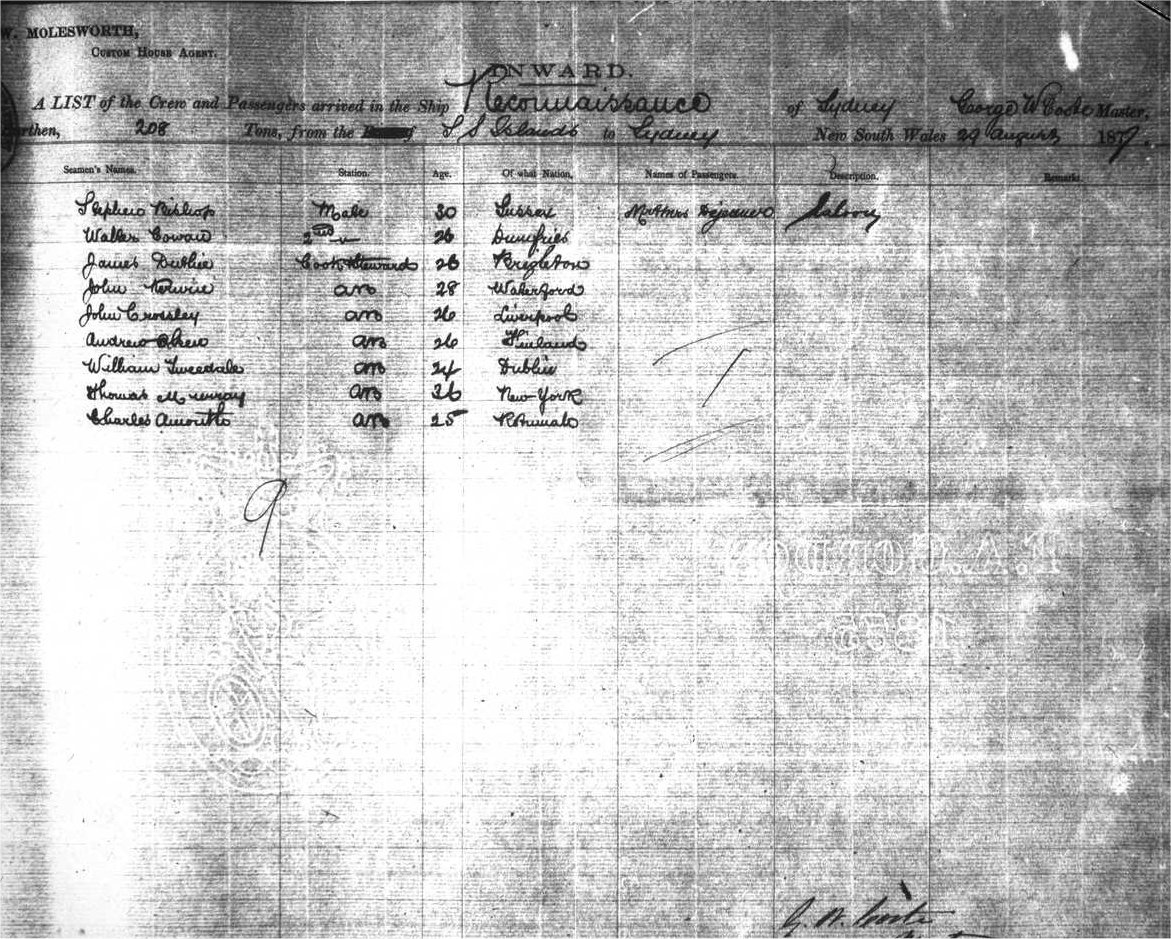 W. MOLESWORTH,
CUSTOM HOUSE AGENT.
INWARD.
A LIST of the Crew and Passengers arrived in the Ship Reconnaissance of Sydney George W Master,
Burthen, 208 Tons, from the S S Islands to Sydney New South Wales 29 August 187
Seamen's Names. Station. Age. Of what Nation. Names of Passengers. Description. Remarks.
Stephen Bishop Mate 30 Sussex Saloon
Walter Cowan 2nd " 26 Dumfries
James Duthie Cook Steward 26
John AB 28 Waterford
John Crossley AB 26 Liverpool
Andrew AB 26 Finland
William Tweedale AB 24 Dublin
Thomas Murray AB 26 New York
Charles AB 25 Rotumah
9
G. W.